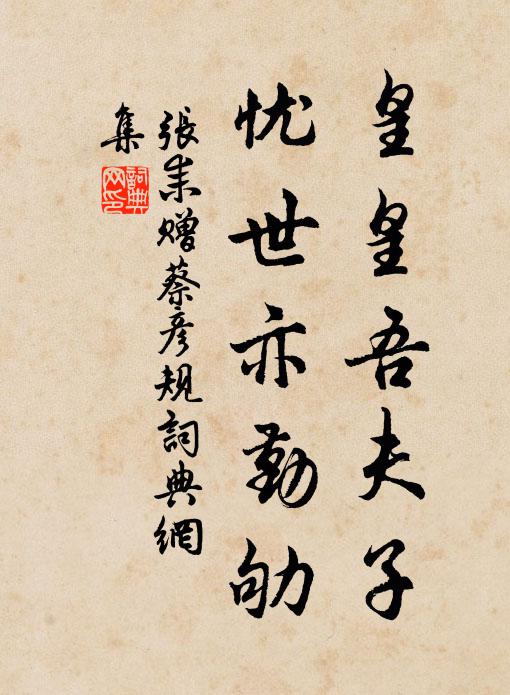 皇皇吾夫子
忧世亦勤劬
張耒赠蔡彦规詞典網
集
詞典
网印